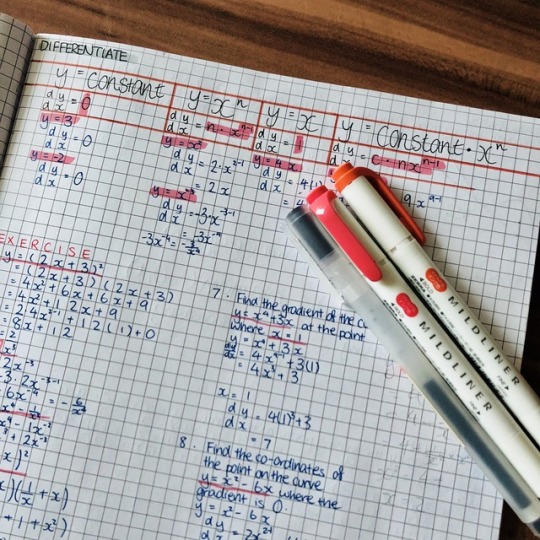 DIFFERENTIATE
y = constant
dy/dx = 0
y = 3
dy/dx = 0
y = -2
dy/dx = 0
y = xⁿ
dy/dx = n·xⁿ⁻¹
y = x²
dy/dx = 2·x²⁻¹
= 2x
y = x⁻³
dy/dx = -3·x⁻³⁻¹
= -3x⁻⁴
-3x⁻⁴ = -3/x⁴
y = x
dy/dx = 1
y = 4x
dy/dx = 4(1)
= 4
y = constant · xⁿ
dy/dx = c·nxⁿ⁻¹
EXERCISE
y = (2x + 3)²
= (2x + 3)(2x + 3)
= 4x² + 6x + 6x + 9
= 4x² + 12x + 9
= 2·4x²⁻¹ + 12(1) + 0
= 8x + 12
2x⁻³
-3·2x⁻³⁻¹
6x⁻⁴ = -6/x⁴
7. Find the gradient of the
y = x⁴ + 3x at the point
where x = 1
y = x⁴ + 3x
dy/dx = 4x⁴⁻¹ + 3(1)
= 4x³ + 3
x = 1
dy/dx = 4(1)³ + 3
= 7
8. Find the co-ordinates of
the point on the curve
y = x² - 6x where the
gradient is 0.
y = x² - 6x
dy/dx = 2x²⁻¹
x)(1/x + x)
+ 1 + x²)
MILDLINER
MILDLINER